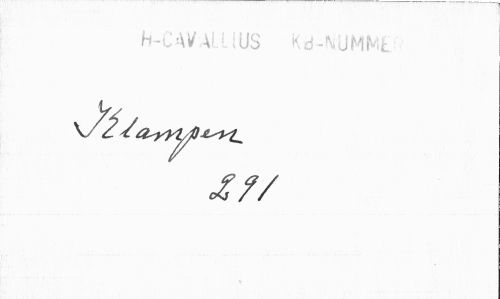 H-CAVALLIUS KB-NUMMER
Klampen
291